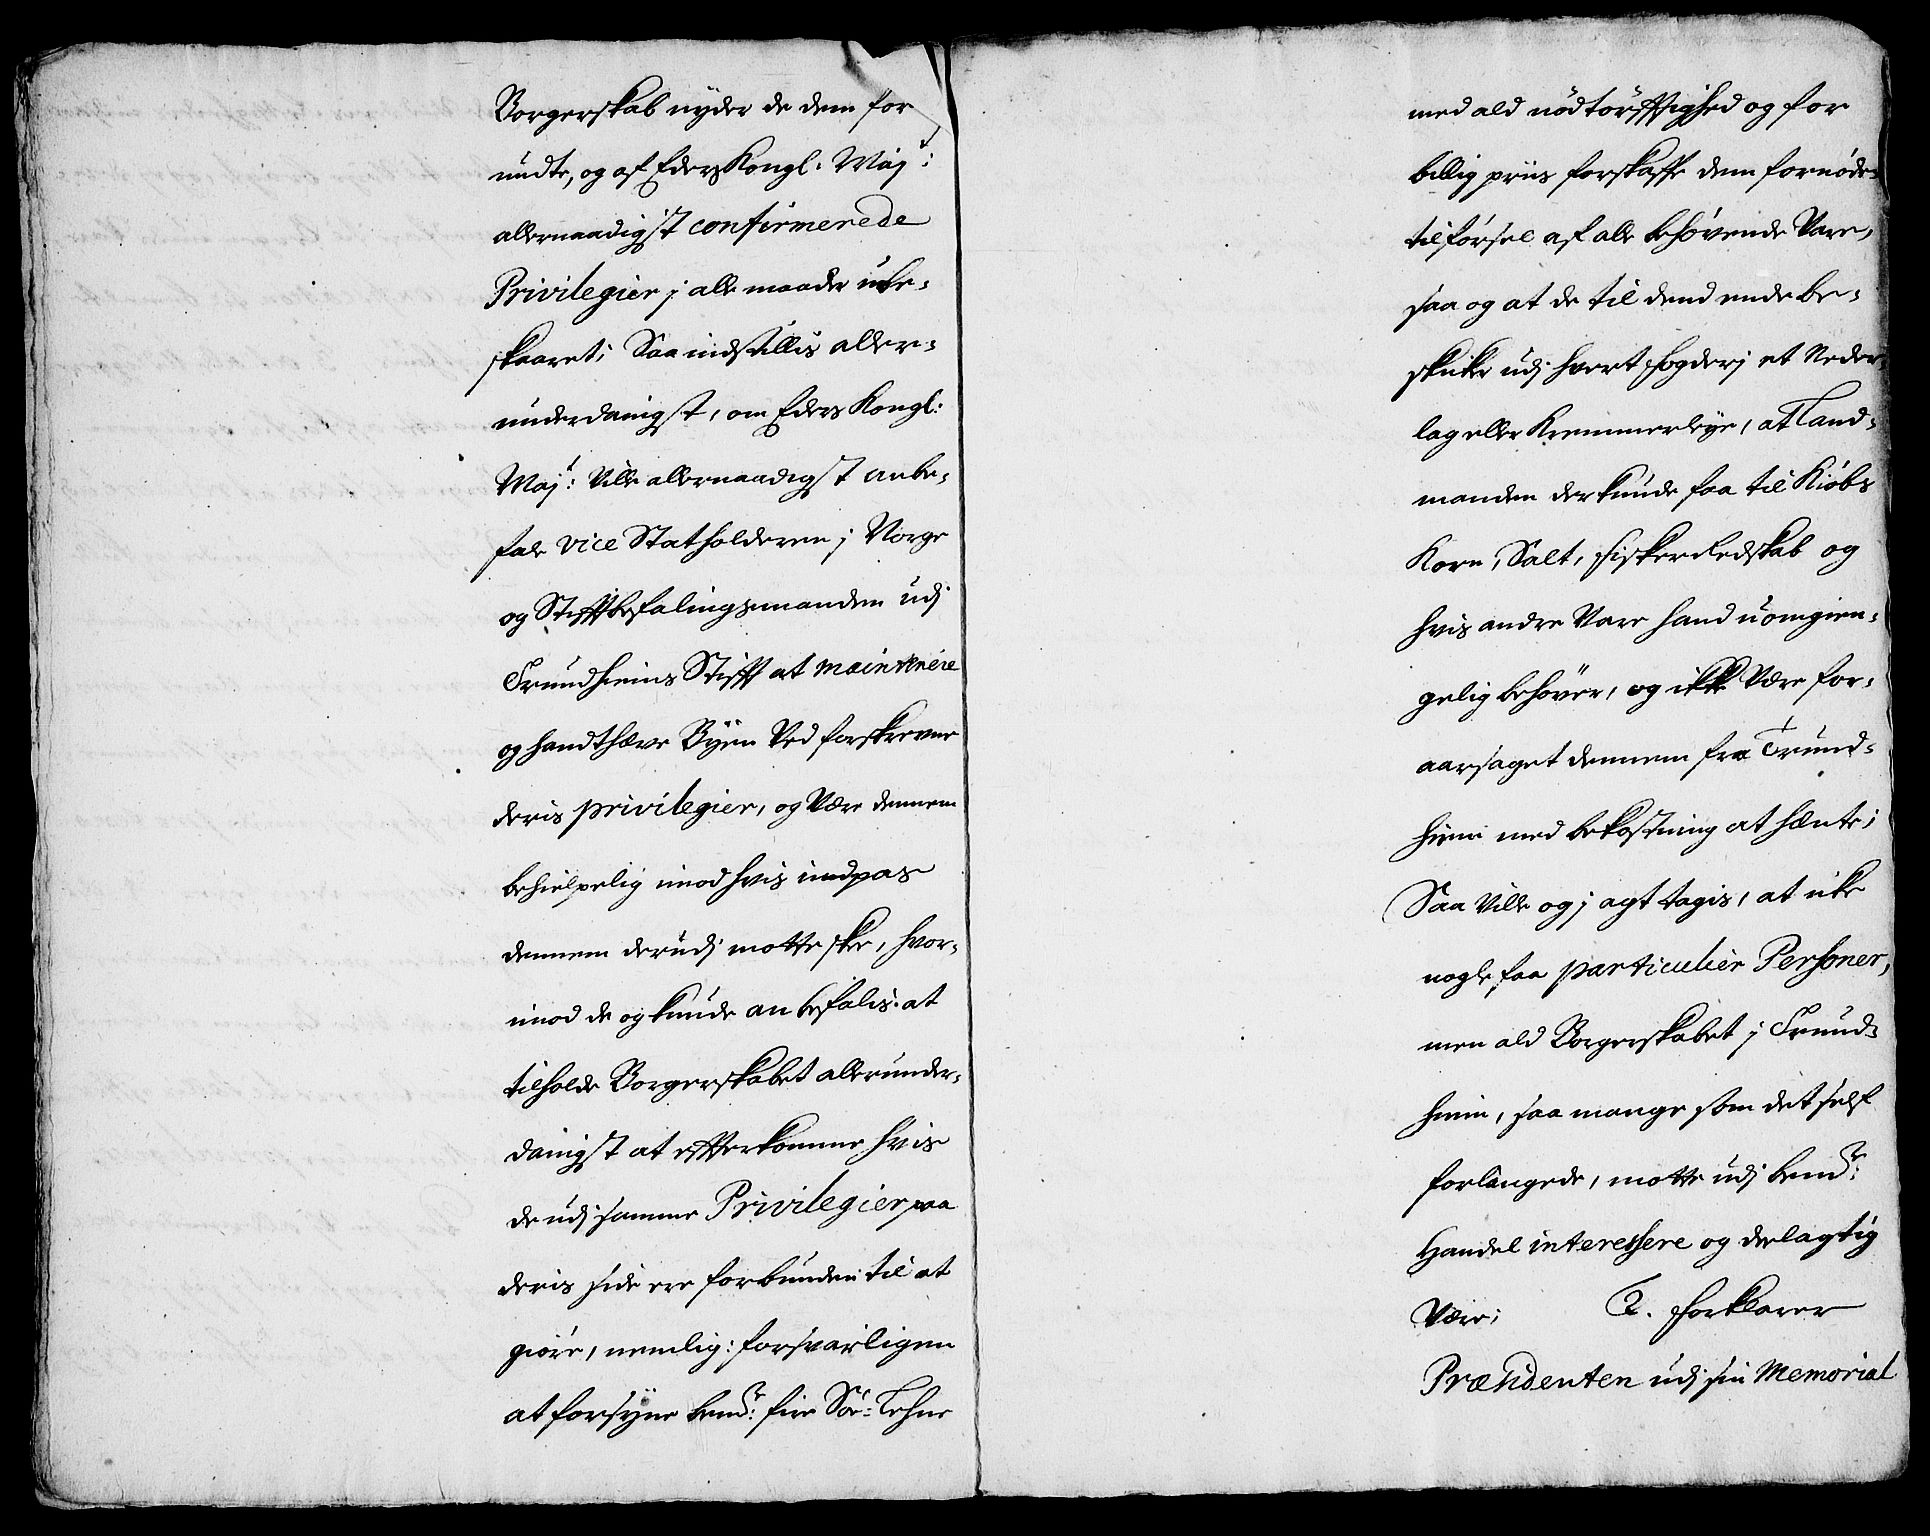 Borgerskab nyder de dem for
undte, og af Eders Kongl: Maj:t
allernaadigst confirmerede
Privilegier j alle maader ube-
skaaret; Saa indstillis aller-
underdanigst, om Eders Kongl:
Maj:t Ville allernaadigst anbe-
fale Vice Statholderen j Norge
og Stiftbefalingsmanden udj
Trundhiems Stifft at maintenere
og handthæve Byen Ved forskrevne
deris privilegier, og Være dennem
behielpelig imod hvis indpas
dennem derudj motte ske, hvor-
imod de og kunde anbefalis at
tilholde Borgerskabet allerunder-
danigst at effterkomme hvis
de udj samme Privilegier paa
deris side ere forbunden til at
giöre, nemlig: forsvarligen
at forsyne bem:te fire Söe-Lehne
med ald nödtörfftighed og for
billig priis forskaffe dem fornöden
tilförsel af alle behövende Vare,
saa og at de til dend ende be-
skicke udj hvert fogderj et Neder-
lag eller Kremmerleye, at Land-
manden der kunde faa til Kiöbs
Korn, Salt, fisker Redskab og
hvis andre Vare hand uomgien-
gelig behöver, og ikke Være for-
aarsaget dennem fra Trund-
hiem med bekostning at hænte;
Saa Ville og j agt tagis, at icke
nogle faa particulier Personer,
men ald Borgerskabet j Trund-
hiem, saa mange som det self
forlangede, motte udj bem:te
Handel interessere og delagtig
Være; 2. forklarer
Præsidenten udj sin Memorial